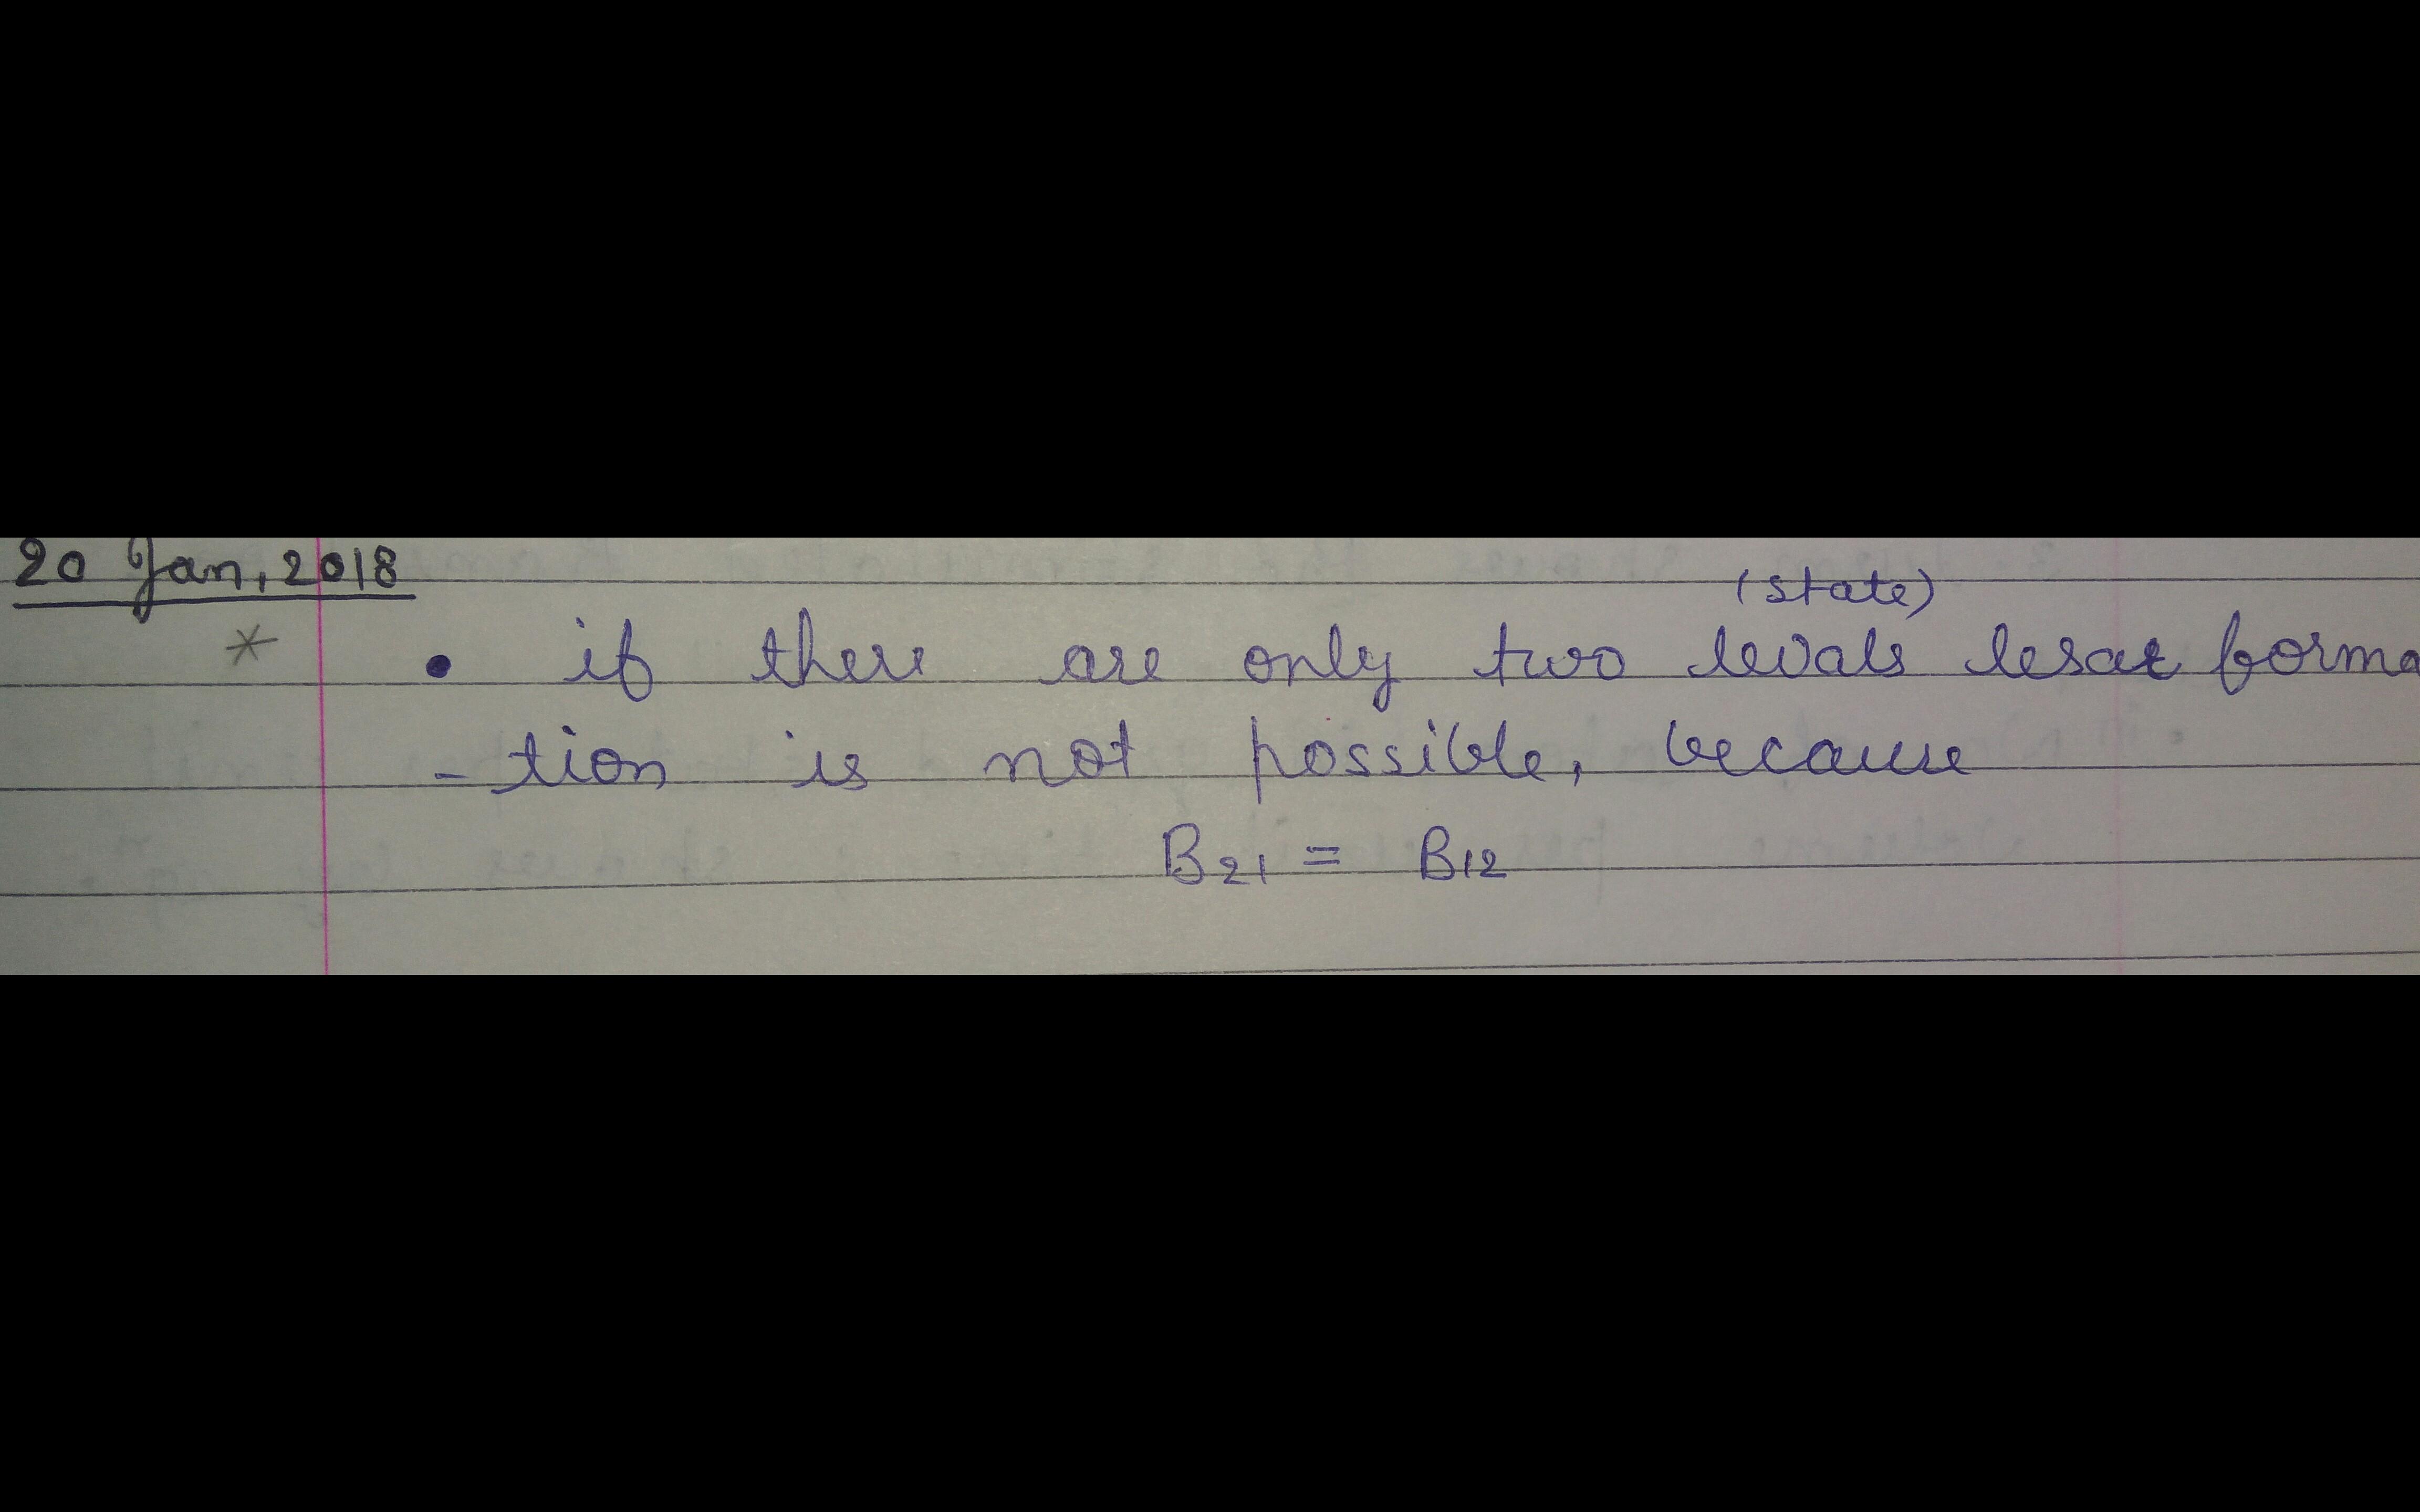 20 Jan, 2018
(state)
* • if there are only two levals lesar forma
- tion is not possible, because
B21 = B12